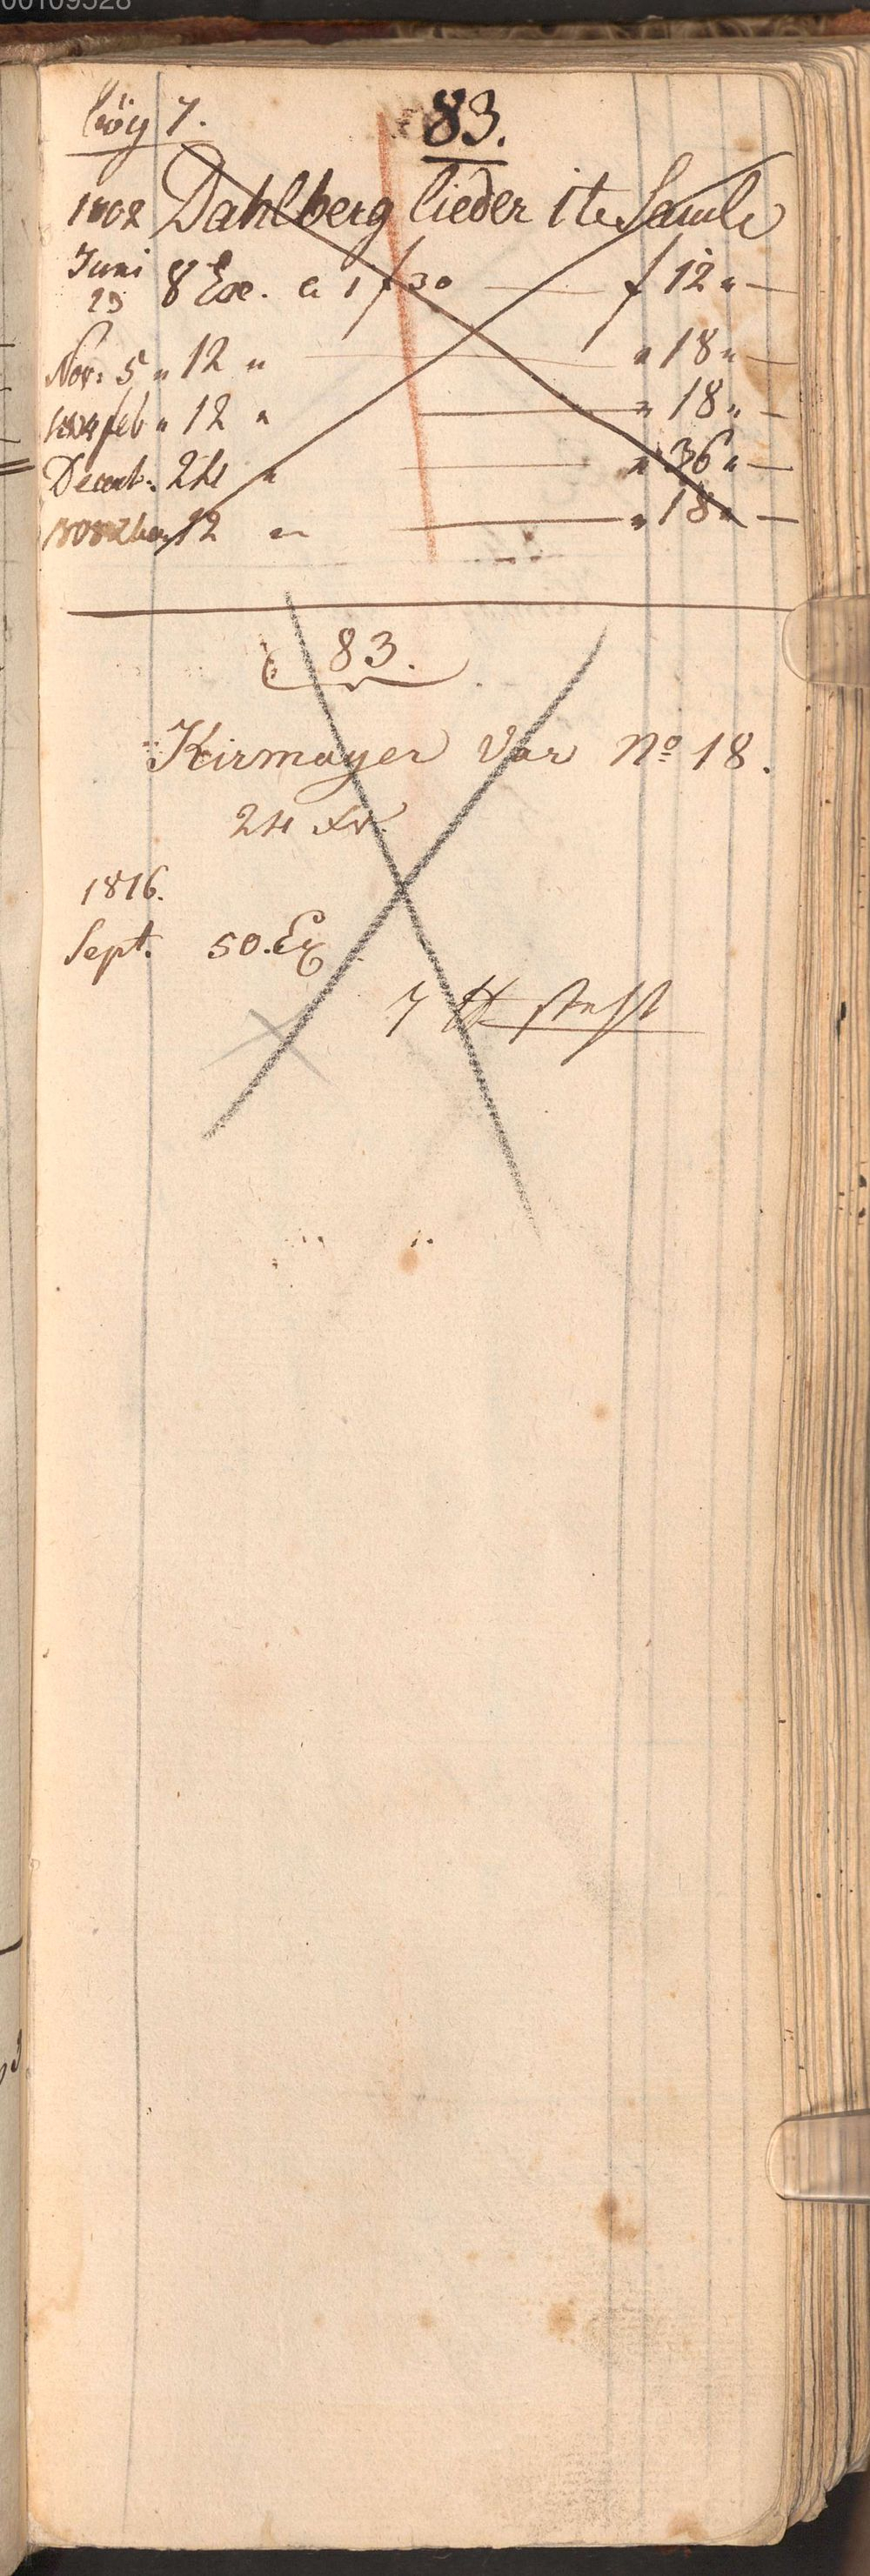 00109528
83.
1802 Dahlberg lieder 1te Samlg
Juni
23 8 Ex. a 1 f 30 — f 12 " —
Nov: 5 " 12 " — " 18 " —
1804 feb " 12 " — " 18 " —
Decemb: 24 " — " 36 " —
12 " — " 18 " —
83.
Kirmayer Var No 18.
24 Xr.
1816.
Sept. 50. Ex
7